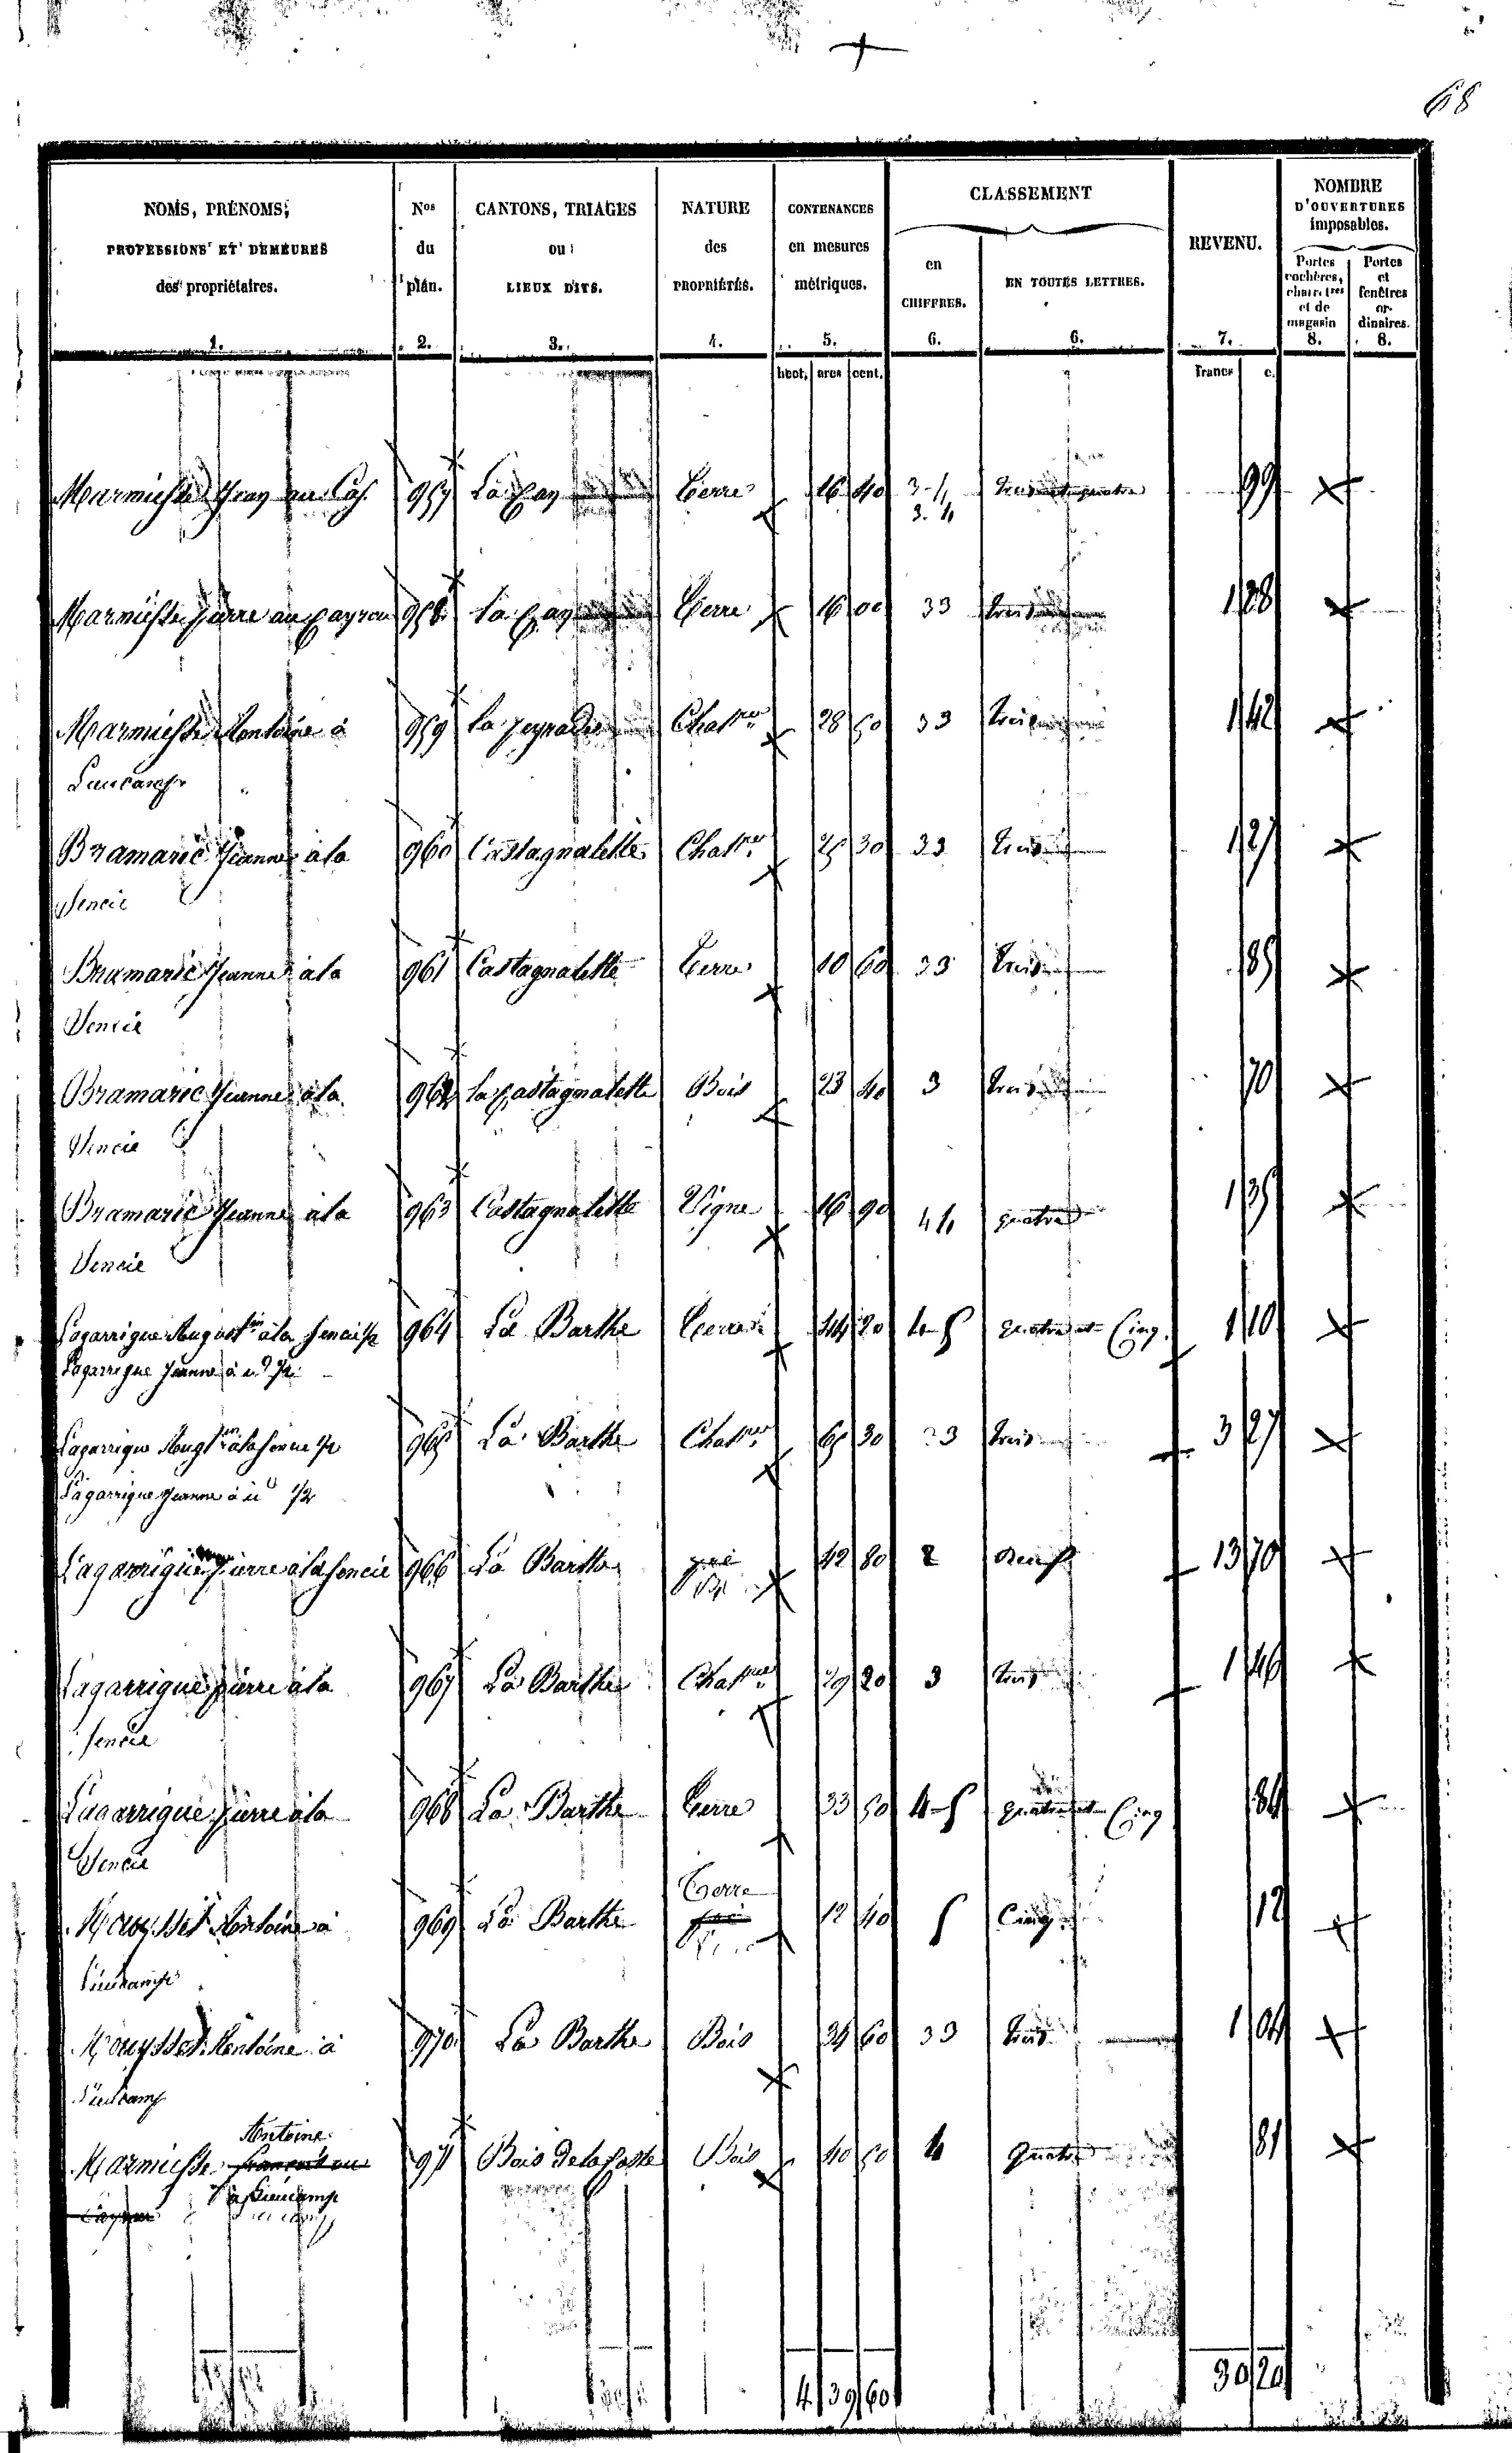 68
NOMS, PRÉNOMS, PROFESSIONS ET DEMEURES des propriétaires. 1.
Nos du plan. 2.
CANTONS, TRIAGES ou LIEUX DITS. 3.
NATURE des PROPRIÉTÉS. 4.
CONTENANCES en mesures métriques. 5.
CLASSEMENT
en CHIFFRES. 6.
EN TOUTES LETTRES. 6.
REVENU. 7.
NOMBRE D'OUVERTURES imposables.
Portes cochères, charretres et de magasin 8.
Portes et fenêtres ordinaires. 8.
hect. ares cent. francs c.
Marmiesse 957 Terre 16 40 3-4 trois et quatre 99
3. 4
Marmiesse pierre au Cayrou 958 Terre 16 00 33 trois 1 28
Marmiesse Antoine à 959 Chatnes 28 50 33 trois 1 42
Lieucamp
Bramarie Jeanne à la 960 Castagnalette Chatnes 25 30 33 trois 1 27
Sencie
Bramarie Jeanne à la 961 Castagnalette Terre 10 60 33 trois 85
Sencie
Bramarie Jeanne à la 962 la Castagnalette Bois 23 40 3 trois 70
Sencie
Bramarie Jeanne à la 963 Castagnalette Vigne 16 90 4 4 quatre 1 35
Sencie
Lagarrigue Augustin à la Sencie 1/2 964 La Barthe Terre 44 20 4-5 quatre et Cinq 1 10
Lagarrigue Jeanne à id 1/2
Lagarrigue Augtin à la Sencie 1/2 965 La Barthe Chatnes 65 30 3 trois 3 27
Lagarrigue Jeanne à id 1/2
Lagarrigue pierre à la Sencie 966 La Barthe pré 42 80 2 deux 13 70
Lagarrigue pierre à la 967 La Barthe Chatnes 29 20 3 trois 1 46
Sencie
Lagarrigue pierre à la 968 La Barthe Terre 33 50 4-5 quatre et Cinq 84
Sencie
Terre
Mouysset Antoine à 969 La Barthe 12 40 5 Cinq 12
Lieucamp
Mouysset Antoine à 970 La Barthe Bois 34 60 33 trois 1 04
Lieucamp
Antoine
Marmiesse 971 Bois de la Coste Bois 40 50 4 quatre 81
à Lieucamp
4 39 60 30 20